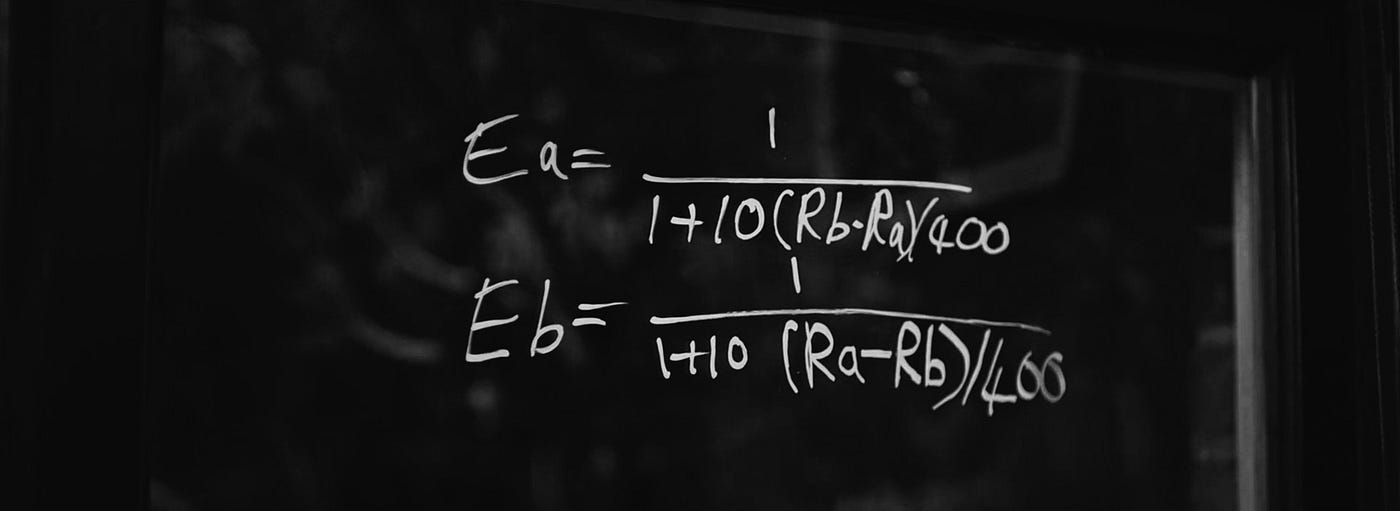 Ea=
1
1+10(Rb-Ra)/400
Eb=
1
1+10 (Ra-Rb)/400